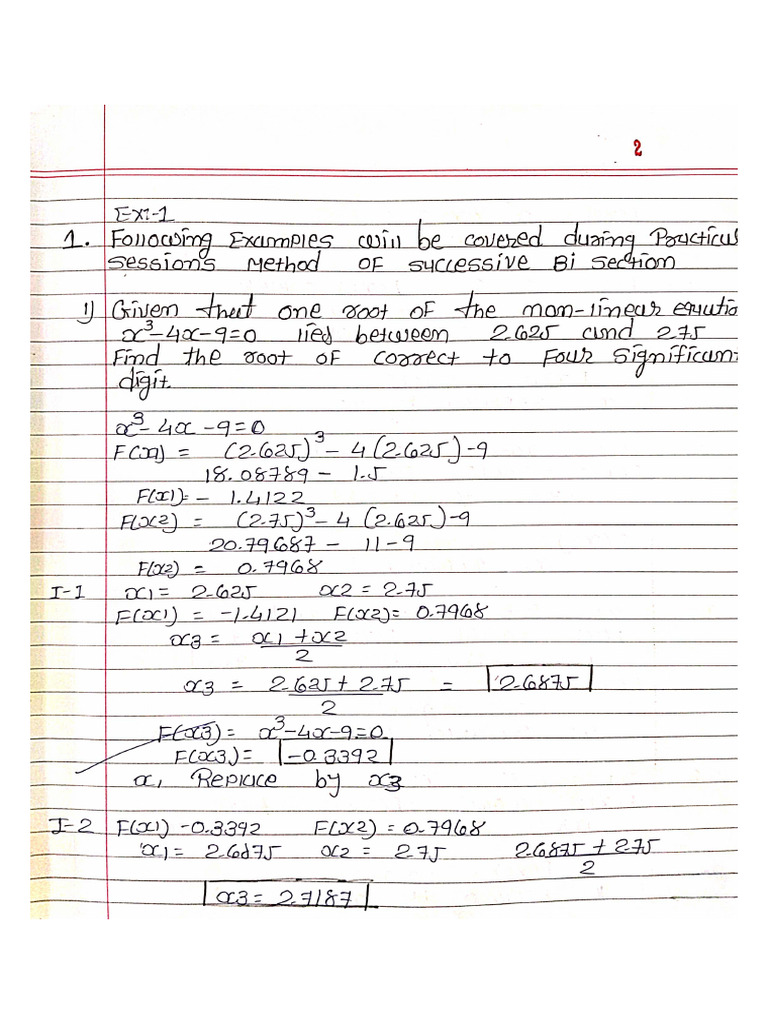 2
Ex:-1
1. Following Examples will be covered during Practical
sessions Method of successive Bi section
1) Given that one root of the non-linear equatio
x³-4x-9=0 lied between 2.625 and 2.75
Find the root of correct to Four Significan
digit.
x³-4x-9=0
F(x1) = (2.625)³-4(2.625)-9
18.08789 - 1.5
F(x1)= - 1.4122
F(x2) = (2.75)³-4(2.625)-9
20.79687 - 11-9
F(x2) = 0.7968
I-1 x1= 2.625 x2 = 2.75
F(x1) = -1.4121 F(x2)= 0.7968
x3 = x1+x2
2
x3 = 2.625+2.75 = 2.6875
2
F(x3)= x³-4x-9=0
F(x3)= -0.3392
x1 Replace by x3
I-2 F(x1) -0.3392 F(x2)=0.7968
x1= 2.6875 x2= 2.75 2.6875+2.75
2
x3 = 2.7187